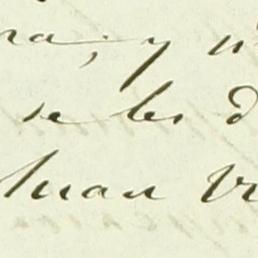 ra; y n
se les d
Juan Vi